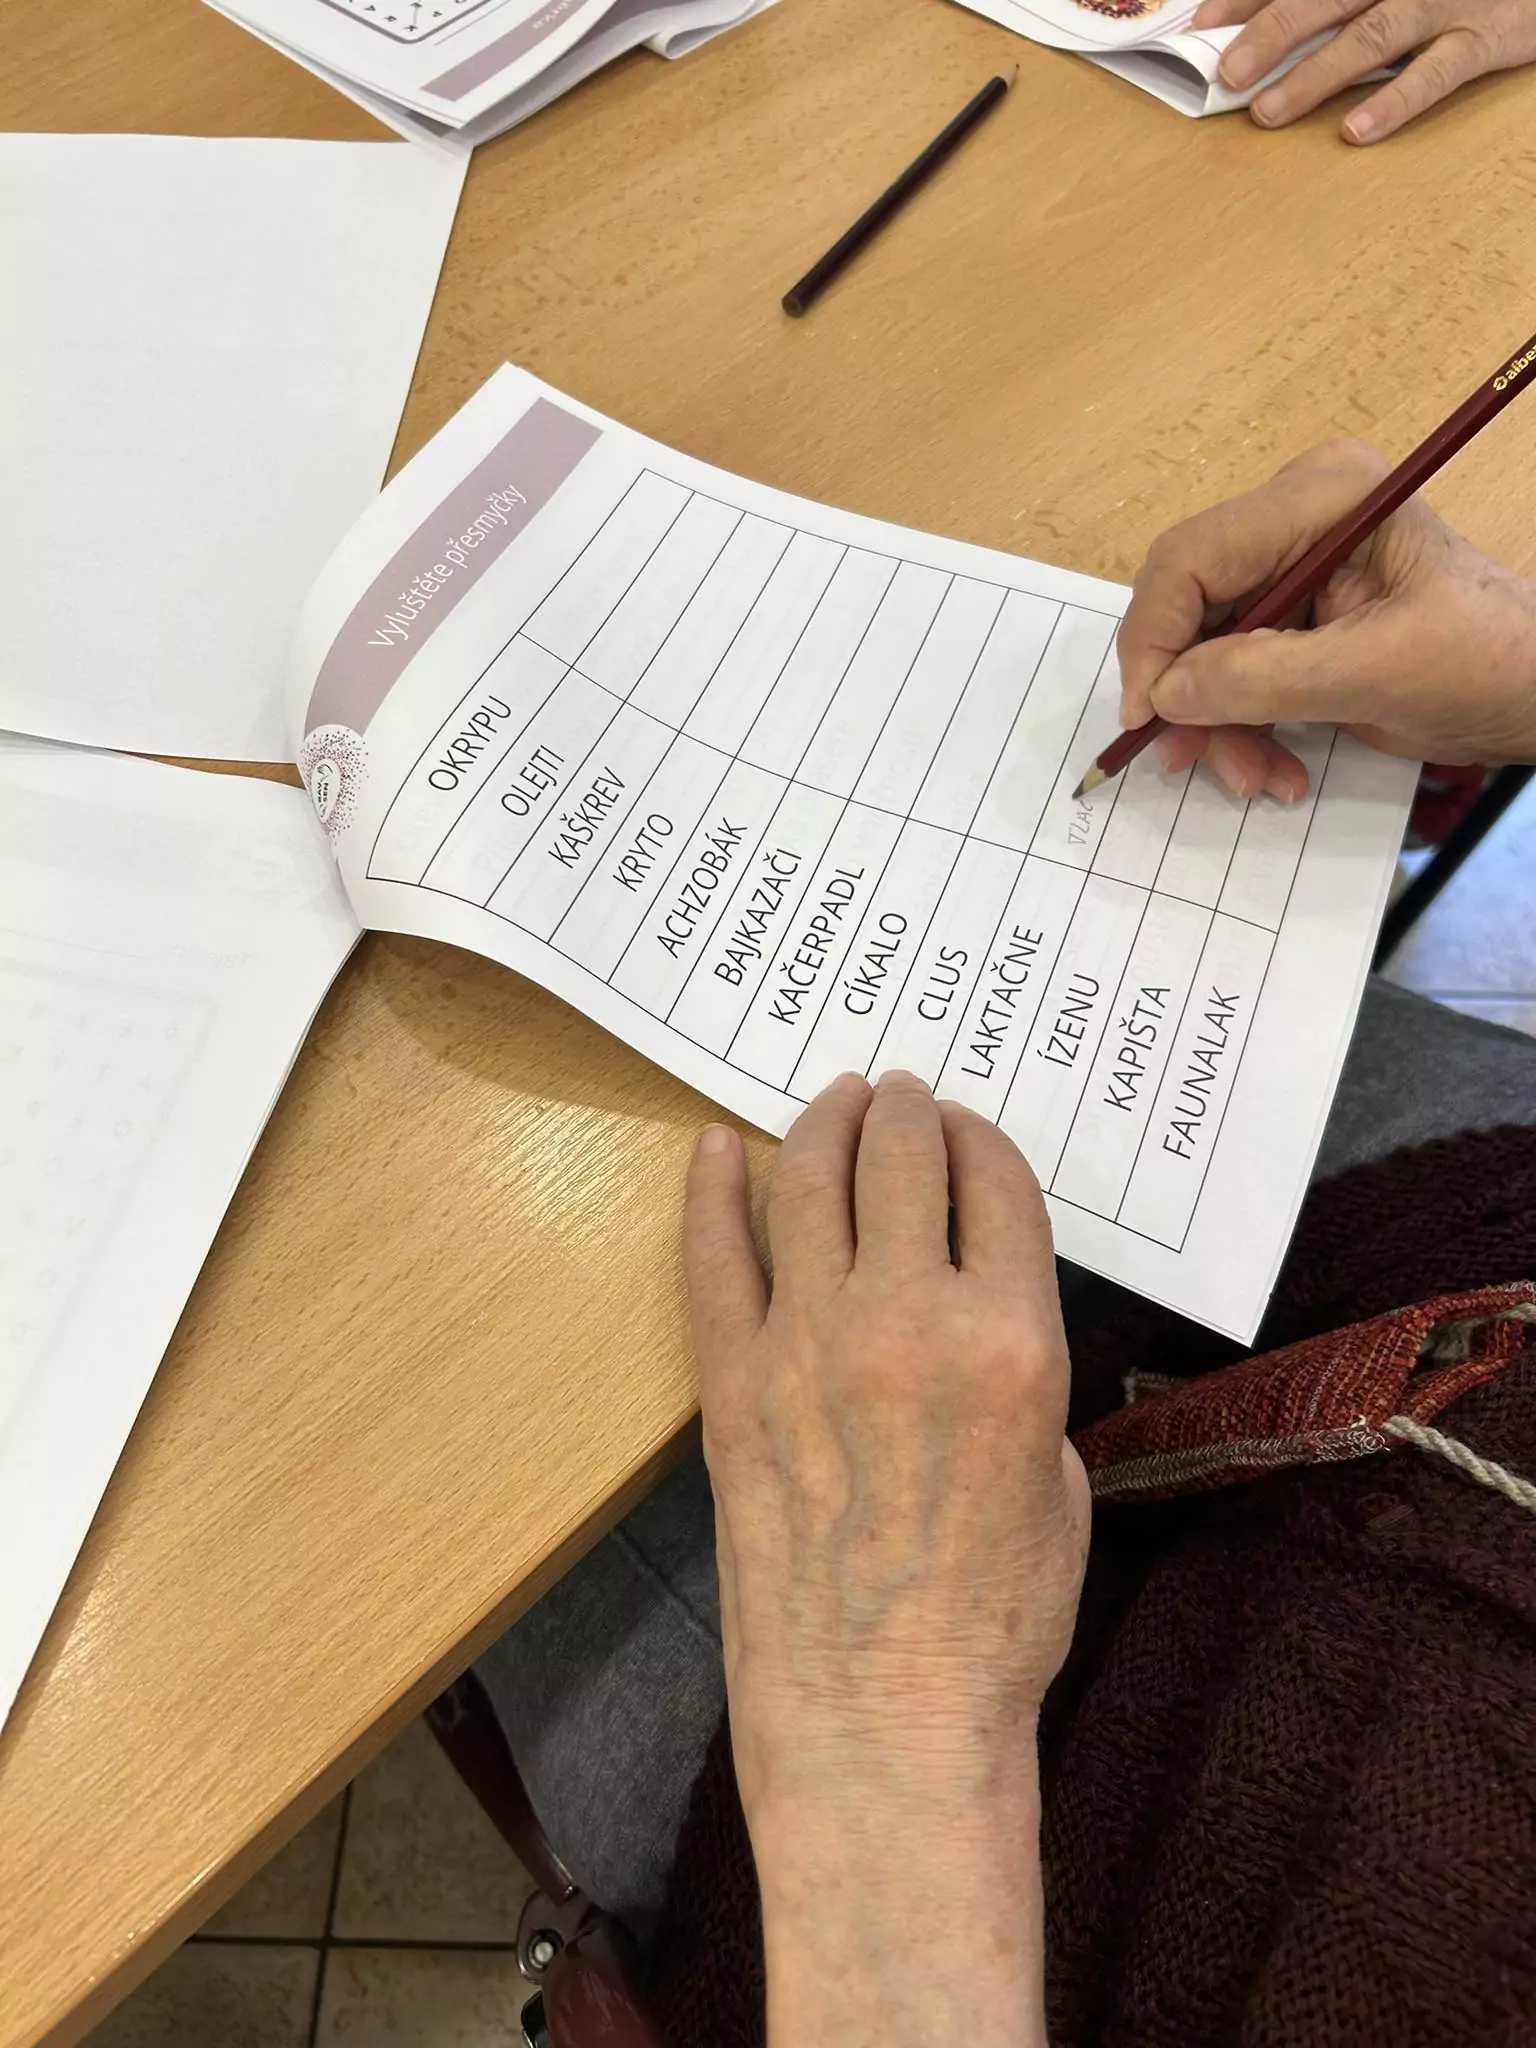 Vyluštěte přesmyčky
OKRYPU
OLEJTI
KAŠKREV
KRYTO
ACHZOBÁK
BAJKAZAČI
KAČERPADL
CÍKALO
CLUS
LAKTAČNE
VTLAČ
ÍZENU
KAPIŠTA
FAUNALAK